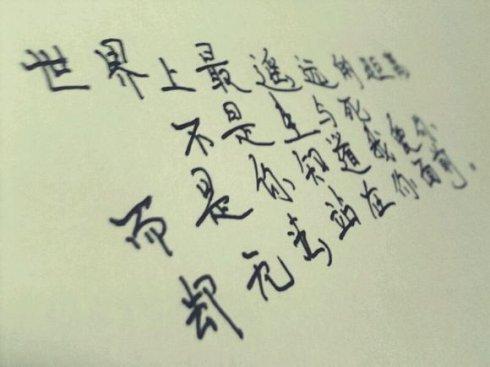 世界上最遥远的距离
不是生与死
而是你知道我爱你
却无法站在你面前.